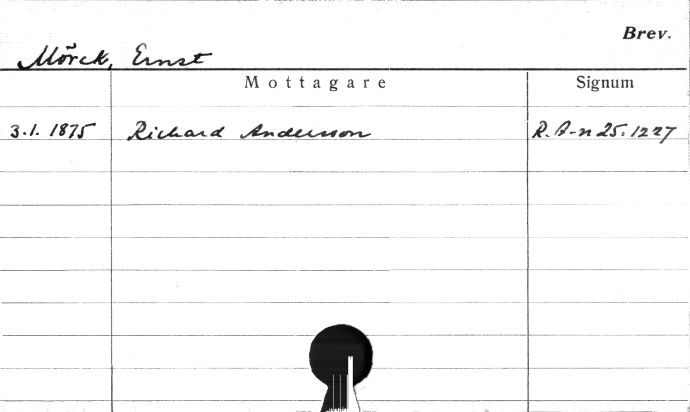 Brev.
Mörck, Ernst
Mottagare Signum
3.1. 1875 Richard Andersson R. A-n 25:1227